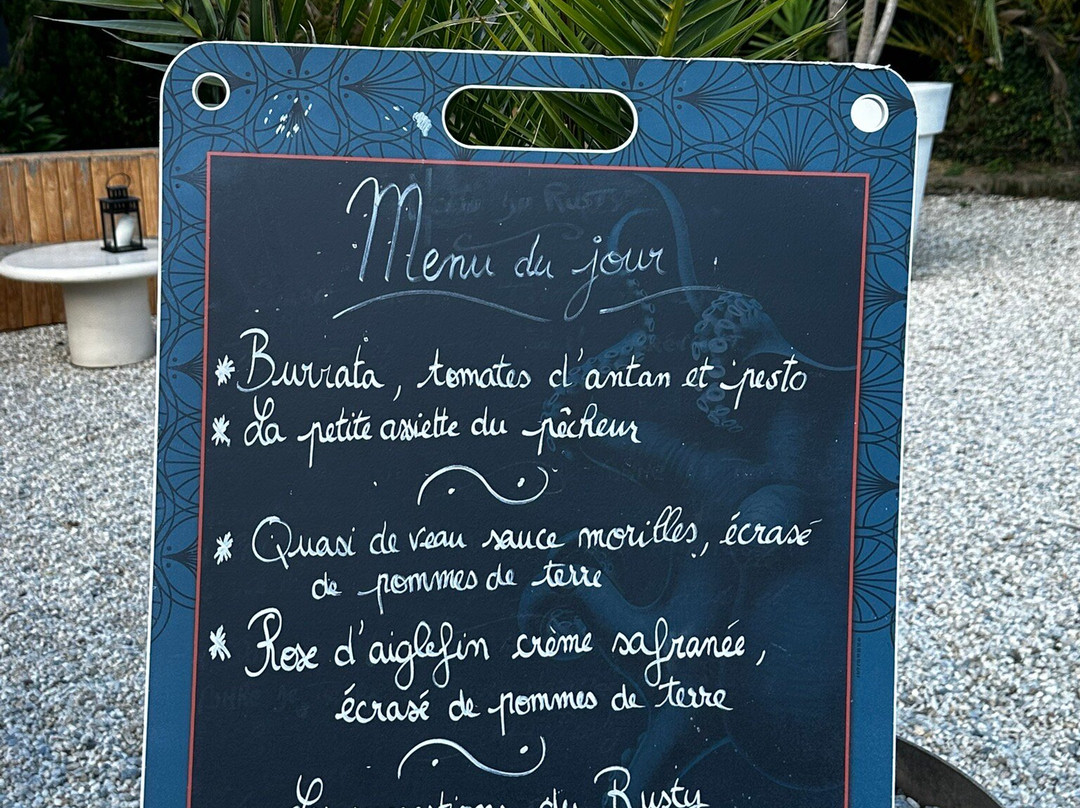 Menu du jour
* Burrata, tomates d'antan et pesto
* La petite assiette du pêcheur
* Quasi de veau sauce morilles, écrasé
de pommes de terre
* Rose d'aiglefin crème safranée,
écrasé de pommes de terre
du Rusty